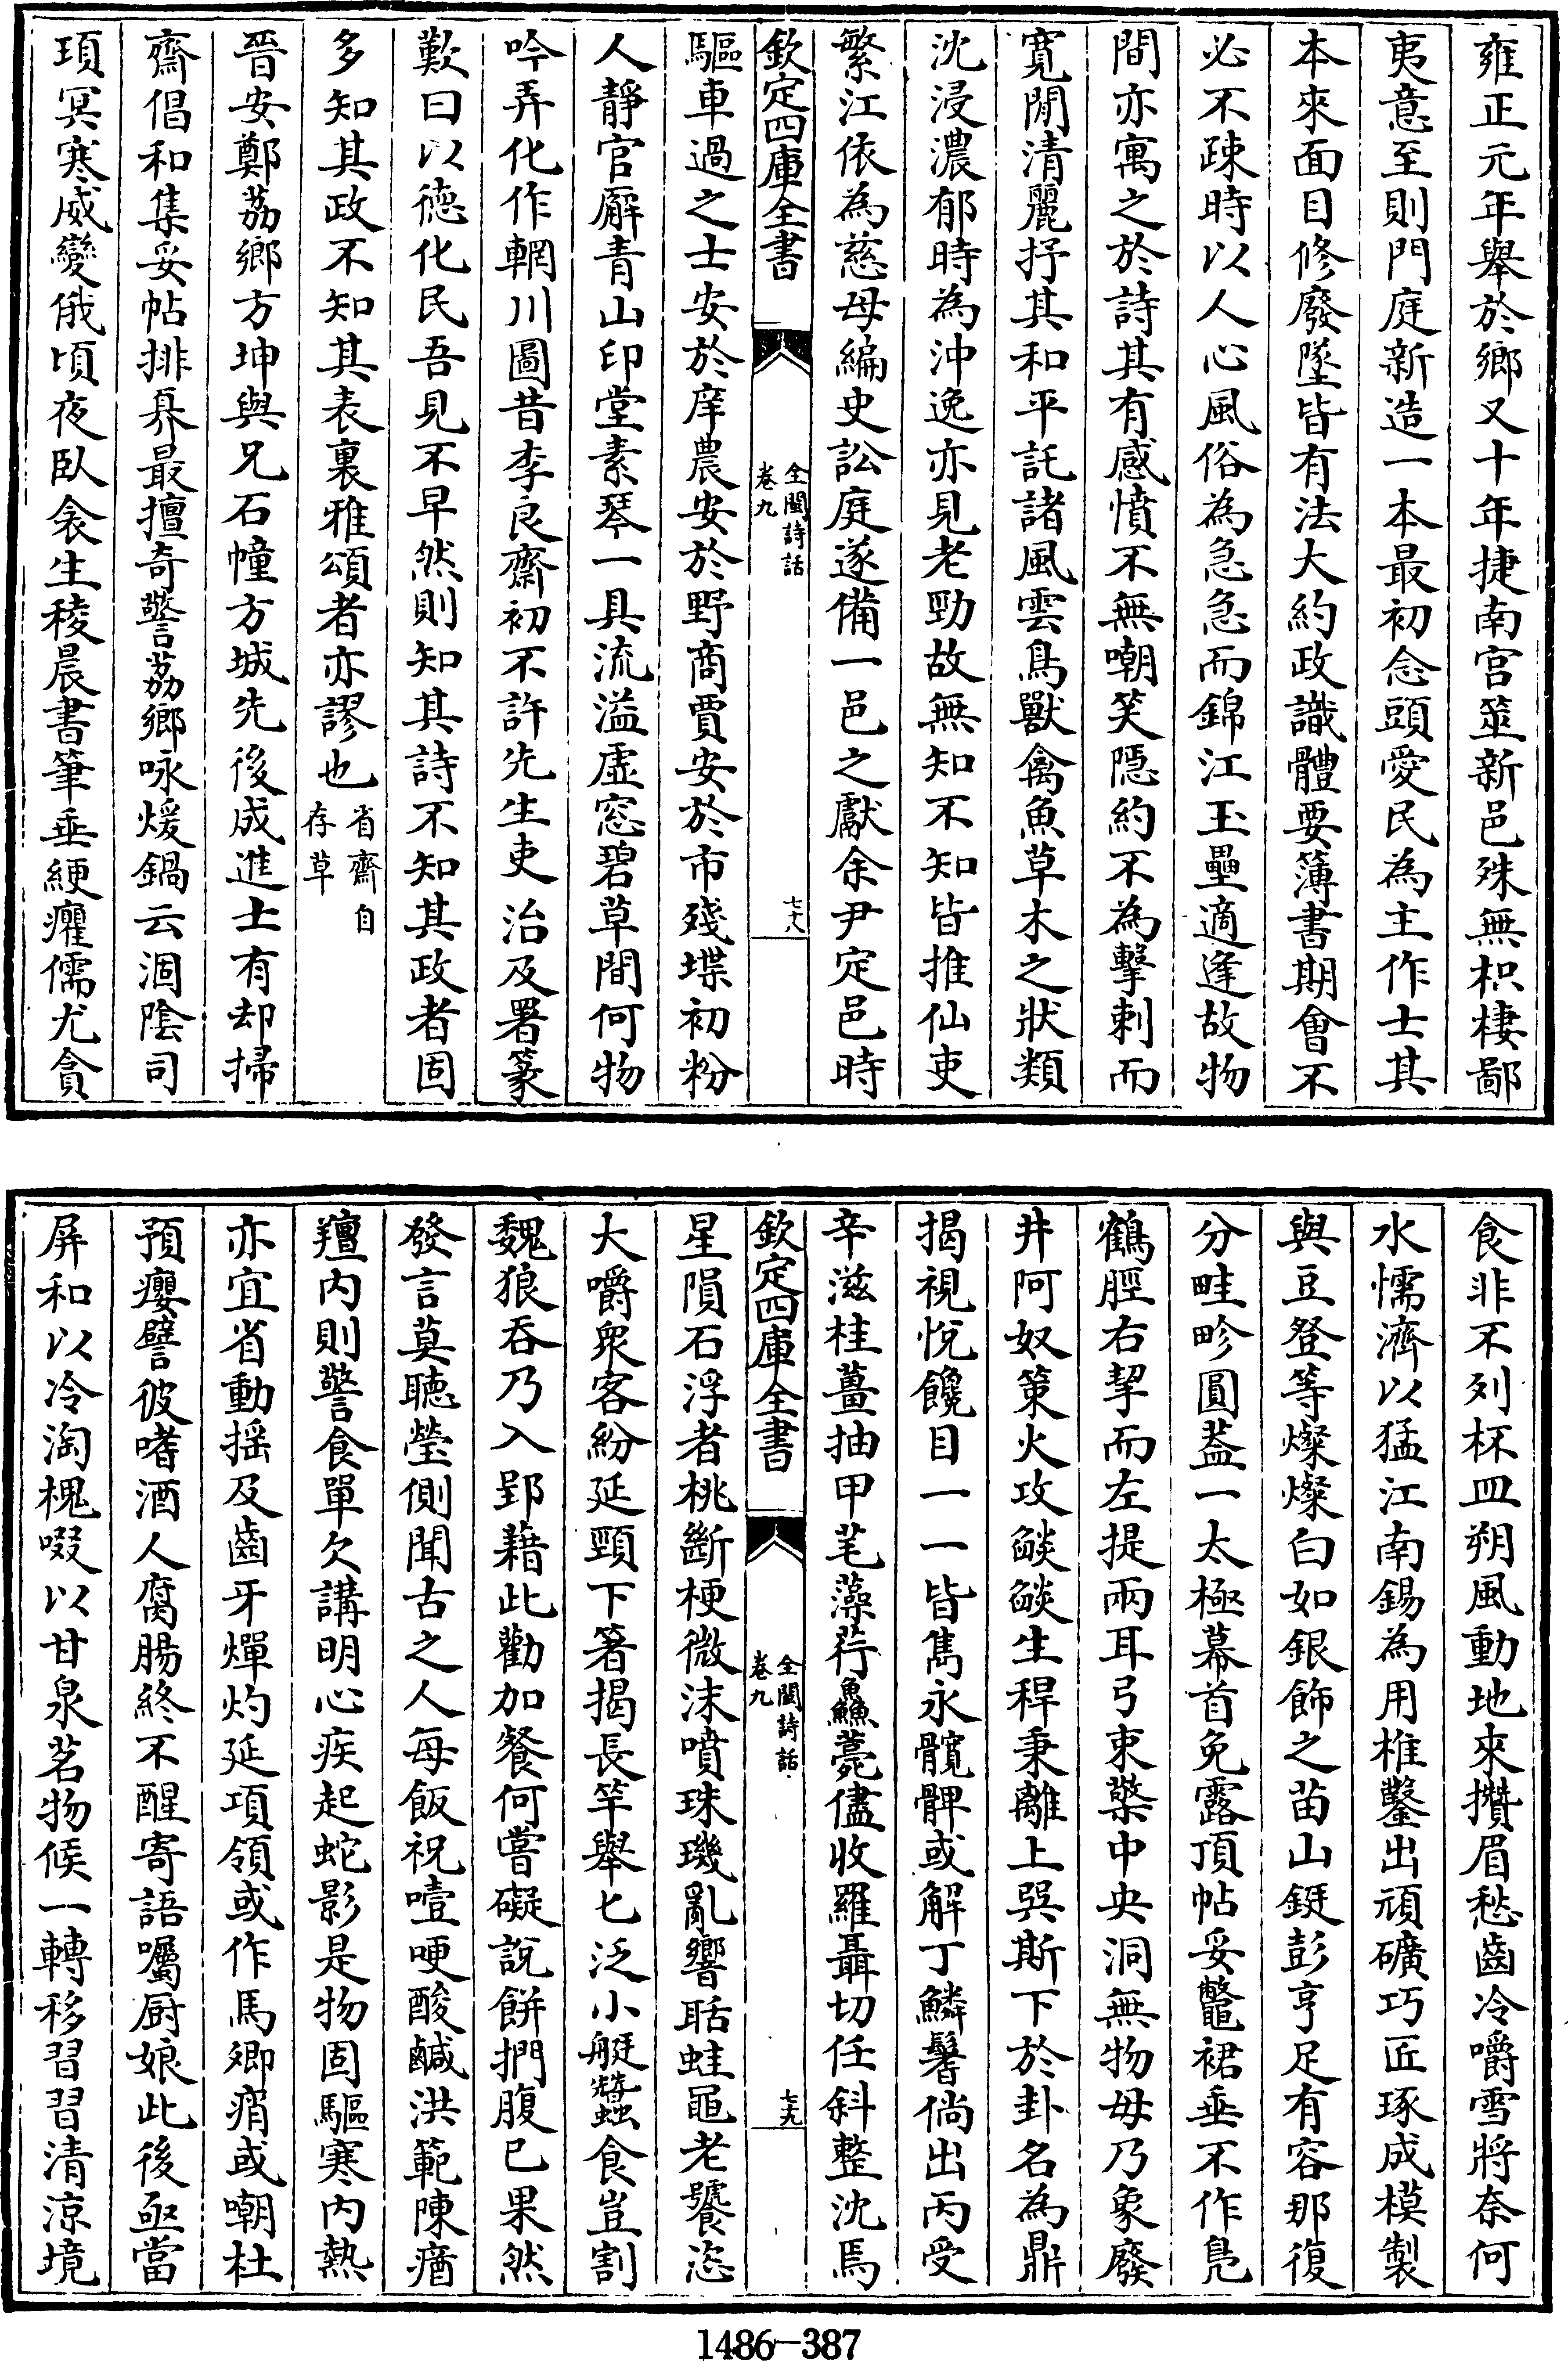 雍正元年舉於鄉又十年捷南宮筮新邑殊無枳棲鄙
夷意至則門庭新造一本最初念頭愛民為主作士其
本來面目修廢墜皆有法大約政識體要簿書期會不
必不疎時以人心風俗為急急而錦江玉壘適逢故物
間亦寓之於詩其有感憤不無嘲笑隱約不為擊刺而
寬閒清麗抒其和平託諸風雲鳥獸禽魚草木之狀類
沈浸濃郁時為沖逸亦見老勁故無知不知皆推仙吏
繁江依為慈母編史訟庭遂備一邑之獻余尹定邑時
欽定四庫全書
全閩詩話
卷九
七十八
驅車過之士安於庠農安於野商賈安於市殘堞初粉
人靜官廨青山印堂素琴一具流溢虛窓碧草間何物
吟弄化作輞川圖昔李良齋初不許先生吏治及署篆
歎曰以德化民吾見不早然則知其詩不知其政者固
多知其政不知其表裏雅頌者亦謬也省齋自
存草
晉安鄭荔鄉方坤與兄石幢方城先後成進士有却掃
齋倡和集妥帖排奡最擅奇警荔鄉咏煖鍋云涸陰司
項冥寒威變俄頃夜臥衾生稜晨書筆垂綆癯儒尤貪
食非不列杯皿朔風動地來攢眉愁齒冷嚼雪將奈何
水懦濟以猛江南錫為用椎鑿出頑礦巧匠琢成模製
與豆登等燦燦白如銀飾之苗山鋌彭亨足有容那復
分畦畛圓葢一太極冪首免露頂帖妥鼈裙垂不作鳧
鶴脛右挈而左提兩耳弓束檠中央洞無物毋乃象廢
井阿奴策火攻燄燄生稈秉離上巽斯下於卦名為鼎
揭視恱饞目一一皆雋永髖髀或解丁鱗鬐倘出丙受
辛滋桂薑抽甲芼藻荇鱻薧儘收羅聶切任斜整沈馬
欽定四庫全書
全閩詩話
卷九
七十九
星隕石浮者桃斷梗微沫噴珠璣亂響聒蛙黽老饕恣
大嚼衆客紛延頸下箸揭長竿舉匕泛小艇蠶食豈割
魏狼吞乃入郢藉此勸加餐何嘗礙説餅捫腹已果然
發言莫聽瑩側聞古之人每飯祝噎哽酸鹹洪範陳痟
羶內則警食單欠講明心疾起蛇影是物固驅寒內熱
亦宜省動揺及齒牙燀灼延項領或作馬卿痟或嘲杜
預癭譬彼嗜酒人腐腸終不醒寄語囑厨娘此後亟當
屏和以冷淘槐啜以甘泉茗物候一轉移習習清涼境
1486-387